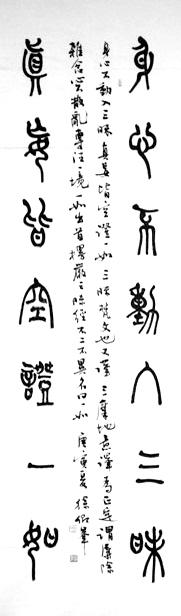 身心不動入三昧
身心不動入三昧真妄皆空證一如三昧梵文也又譯三摩地意譯為正定謂屏除
雜念心不散亂專注一境一如出首楞嚴三昧經不二不異名曰一如
真妄皆空證一如